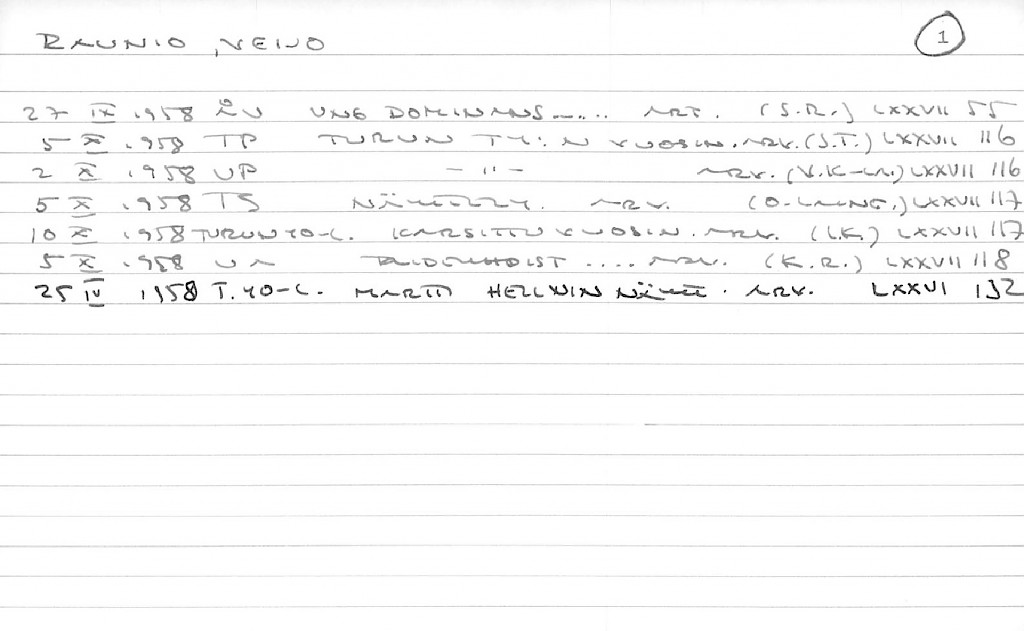 RAUNIO, VEIJO 1
27 IX 1958 ÅU UNG DOMINANS..... ART. (S.R.) LXXVII 55
5 X 1958 TP TURUN TY:N VUOSIN. ARV. (S.T.) LXXVII 116
2 X 1958 UP - " - ARV. (V.K-LA.) LXXVII 116
5 X 1958 TS NÄYTTELY. ARV. (O-L) LXXVII 117
10 X 1958 TURUN YO-L. KARSITTU VUOSIN. ARV. (I.K.) LXXVII 117
5 X 1958 UA .... ARV. (K.R.) LXXVII 118
25 IV 1958 T. YO-L. MARTTI HELLVIN NÄYTT. ARV. LXXVI 132